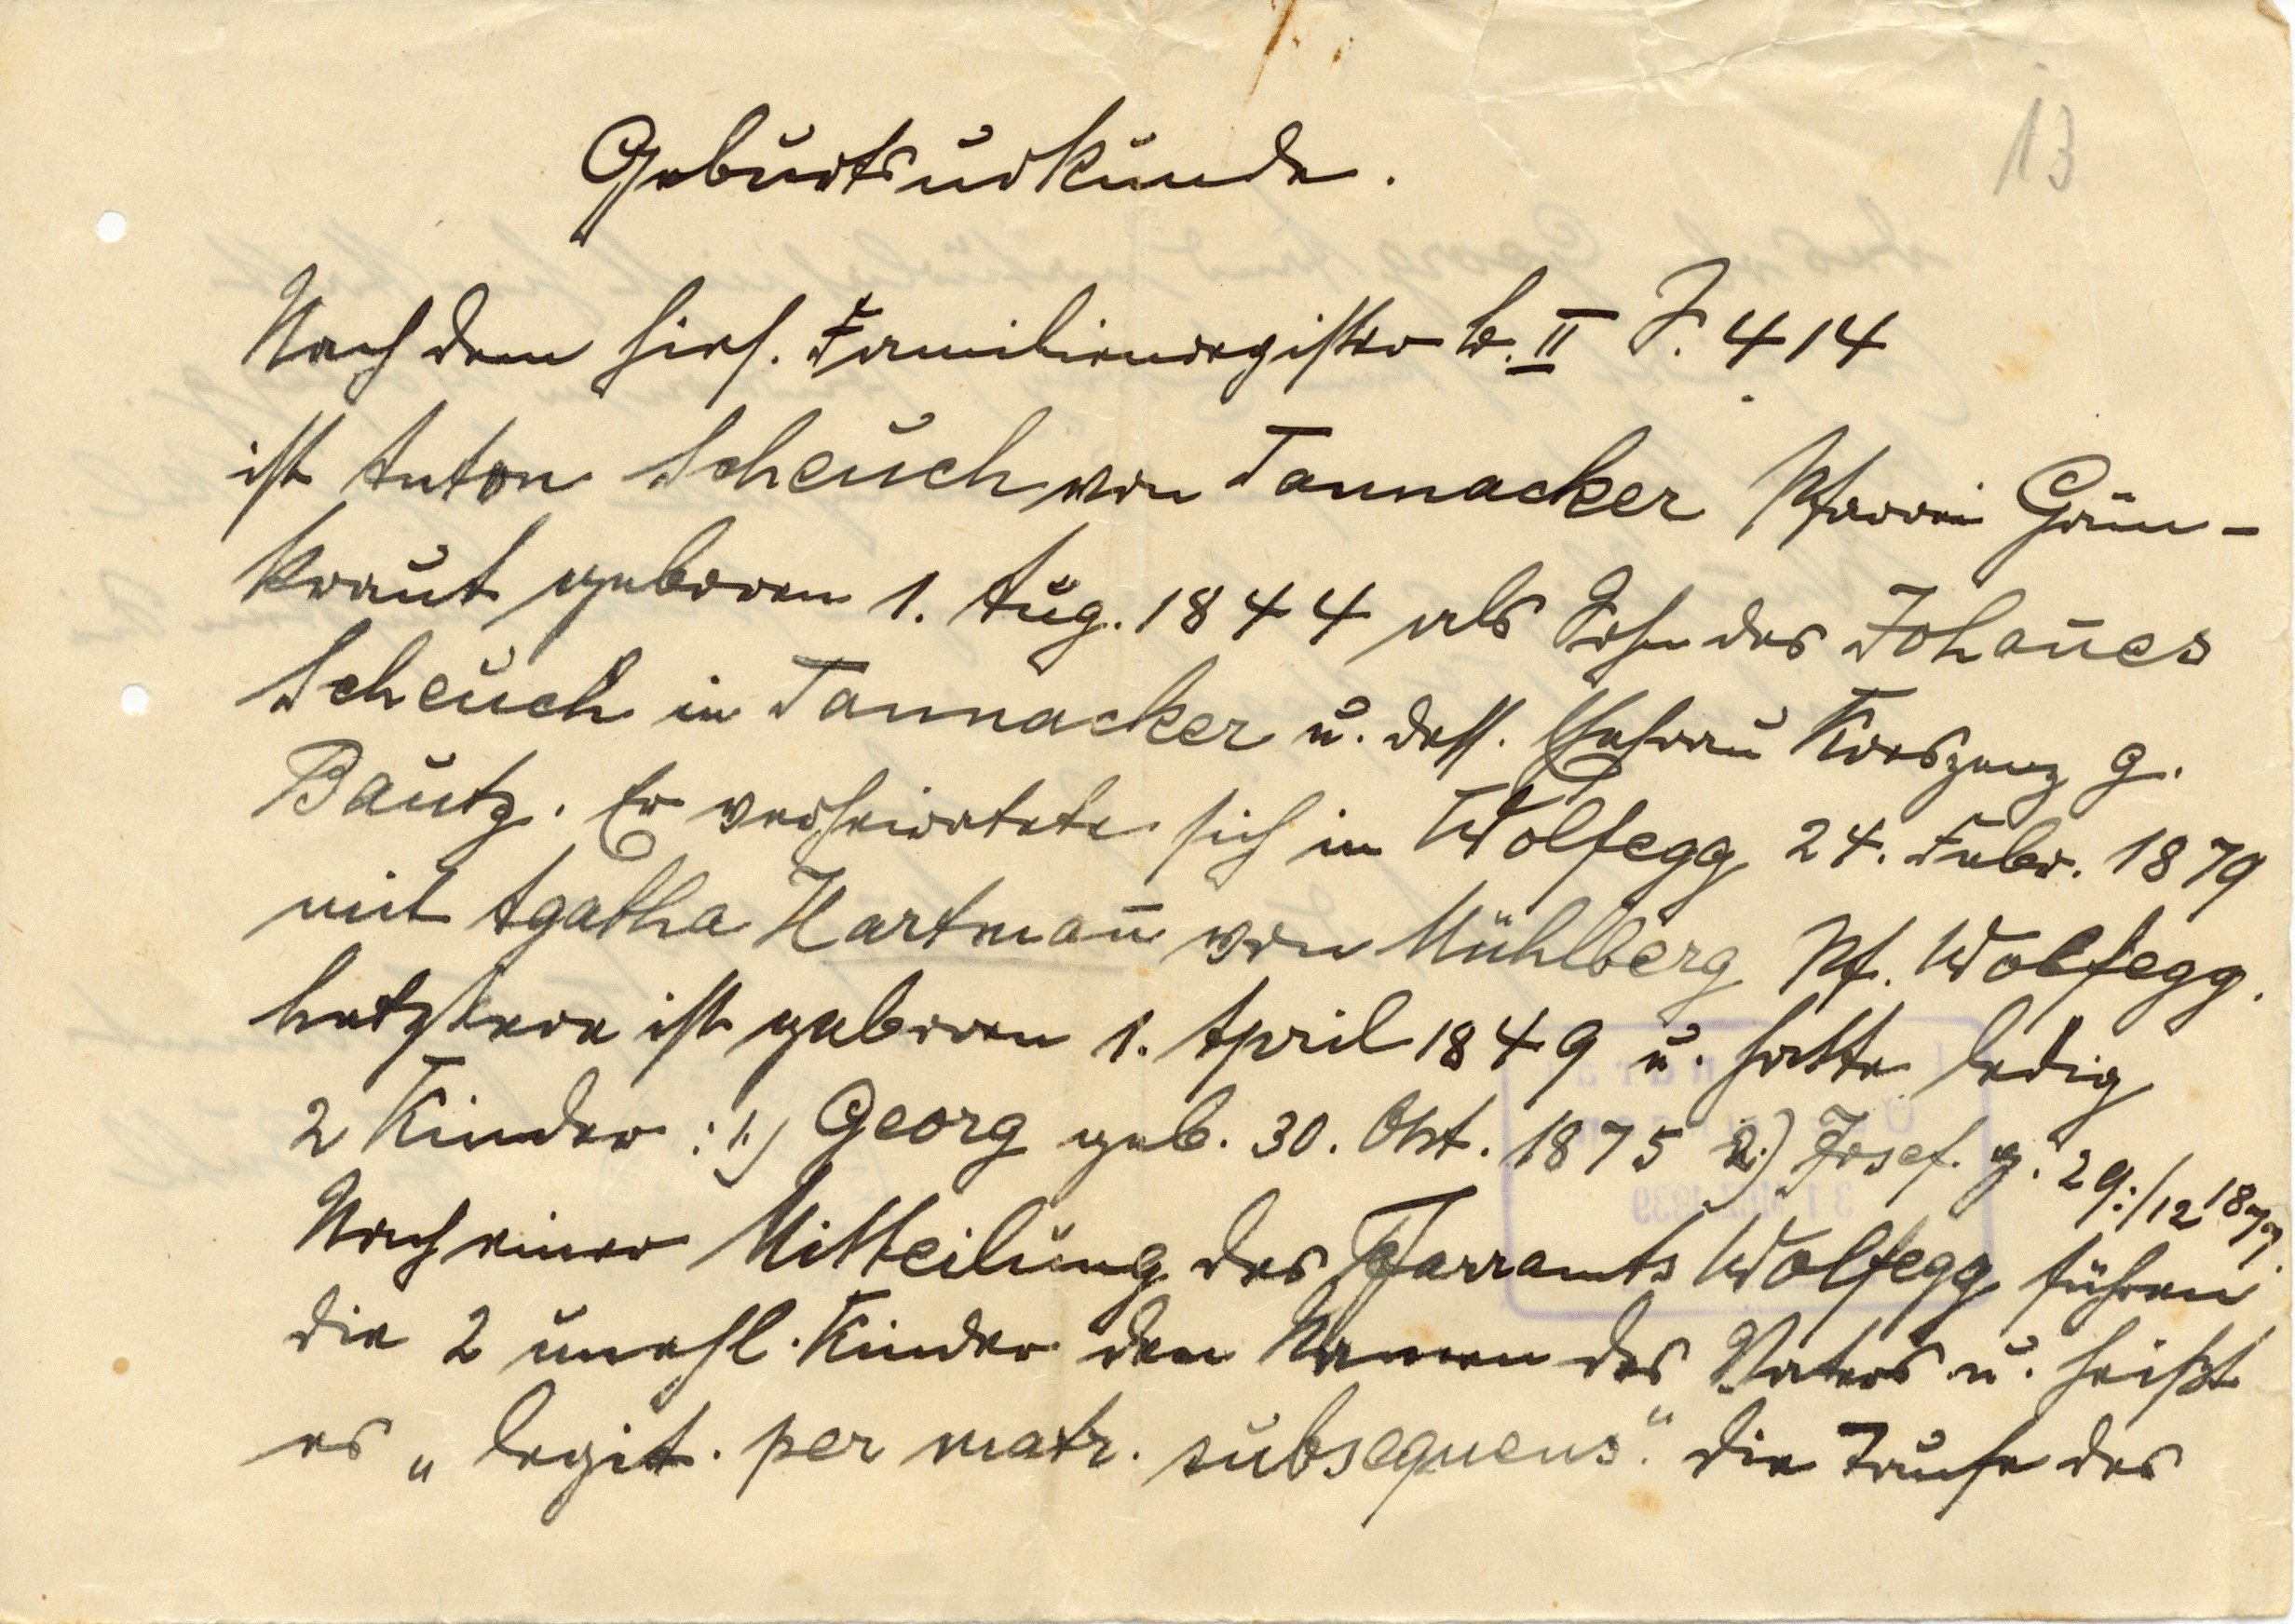 13
Geburtsurkunde.
Nach dem hies. Familienregister b. II S. 414
ist Anton Scheuch von Tannacker Pfarrei Grün-
kraut geboren 1. Aug. 1844 als Sohn des Johan̄es
Scheuch in Tannacker u. dess. Ehefrau Kreszenz g.
Bautz. Er verheiratete sich in Wolfegg 24. Febr. 1879
mit Agatha Hartman̄ von Mühlberg Pf. Wolfegg.
Letztere ist geboren 1. April 1849 u. hatte ledig
2 Kinder: 1.) Georg geb. 30. Okt. 1875 2.) Josef. g. 29./12 1877.
Nach einer Mitteilung des Pfarramts Wolfegg führen
die 2 unehl. Kinder den Namen des Vaters u. heißt
es „legit. per matr. subsequens“. Die Taufe des